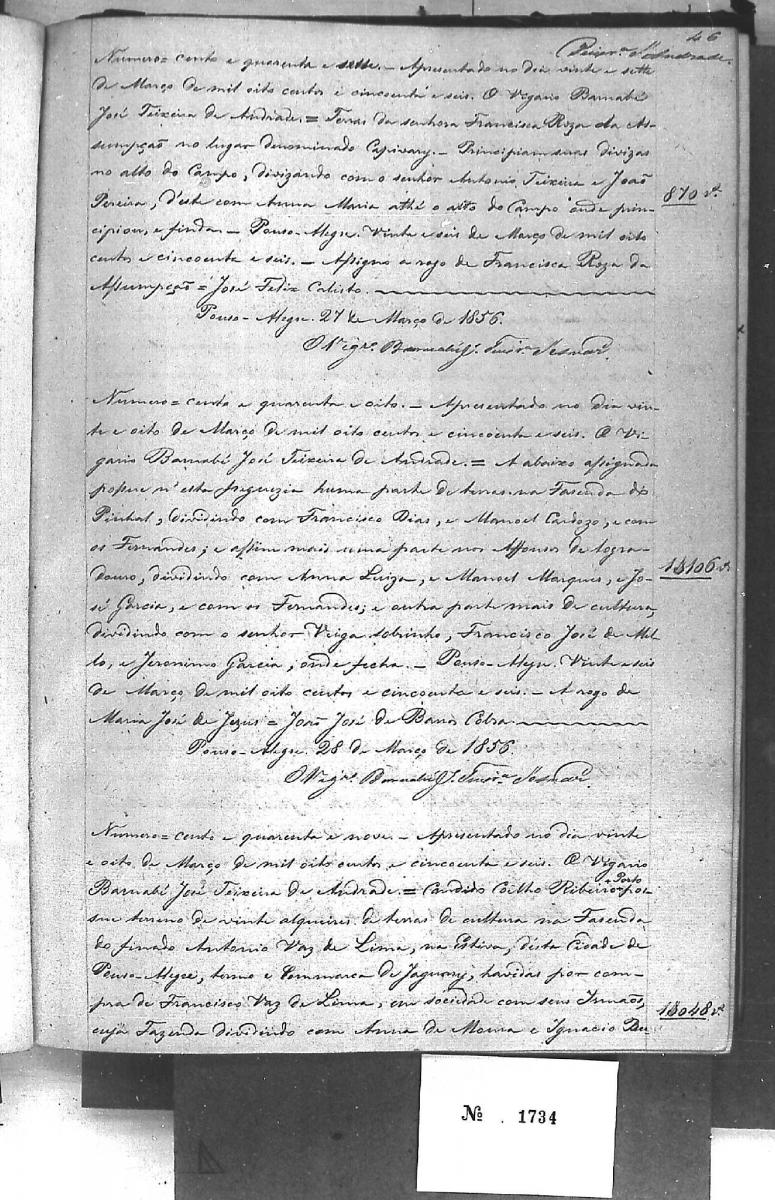 46
Teixr.ª d'Andrade.
Numero = cento e quarenta e sette. — Apresentado no dia vinte e sette
de Março de mil oito centos e cincoenta e seis. O Vigario Barnabé
José Teixeira de Andrade. = Terras da senhora Francisca Roza da As-
sumpção no lugar denominado Capivary. — Principiam suas divizas
no alto do Campo, divizando com o senhor Antonio Teixeira e João
Pereira, d'este com Anna Maria athé o alto do Campo onde prin-
870 rs.
cipiou, e finda. — Pouso-Alegre. Vinte e seis de Março de mil oito
centos e cincoenta e seis. — Assigno a rogo de Francisca Roza da
Assumpção = José Feliz Calisto.
Pouso-Alegre. 27 de Março de 1856.
O Vigr.º Barnabé J. Teixr.ª
Numero = cento e quarenta e oito. — Apresentado no dia vin-
te e oito de Março de mil oito centos e cincoenta e seis. O Vi-
gario Barnabé José Teixeira de Andrade. = A abaixo assignada
possue n'esta freguezia huma parte de terras na Fazenda do
Pinhal, dividindo com Francisco Dias, e Manoel Cardozo, e com
os Fernandes; e assim mais uma parte nos Affonsos de logra-
douro, dividindo com Anna Luiza, e Manoel Marques, e Jo-
1$106 rs
sé Garcia, e com os Fernandes; e outra parte mais de cultura,
dividindo com o senhor Veiga sobrinho, Francisco José de Mel-
lo, e Jeronimo Garcia, onde fecha. — Pouso-Alegre. Vinte e seis
de Março de mil oito centos e cincoenta e seis. — A rogo de
Maria José de Jezus = João José de Barros Cobra.
Pouso-Alegre. 28 de Março de 1856.
O Vigr.º Barnabé J. Teixr.ª
Numero = cento e quarenta e nove. — Apresentado no dia vinte
e oito de Março de mil oito centos e cincoenta e seis. O Vigario
Barnabé José Teixeira de Andrade. = Candido Coelho Ribeiro Porto pos-
sue terreno de vinte alqueires de terras de cultura na Fazenda
do finado Antonio Vaz de Lima, na Estiva, desta Cidade de
Pouso-Alegre, termo e Commarca de Jaguary, havidas por com-
pra de Francisco Vaz de Lima, em sociedade com seus Irmãos,
1$048 rs
cuja Fazenda dividindo com Anna de Moura e Ignacio Bu-
№ 1734